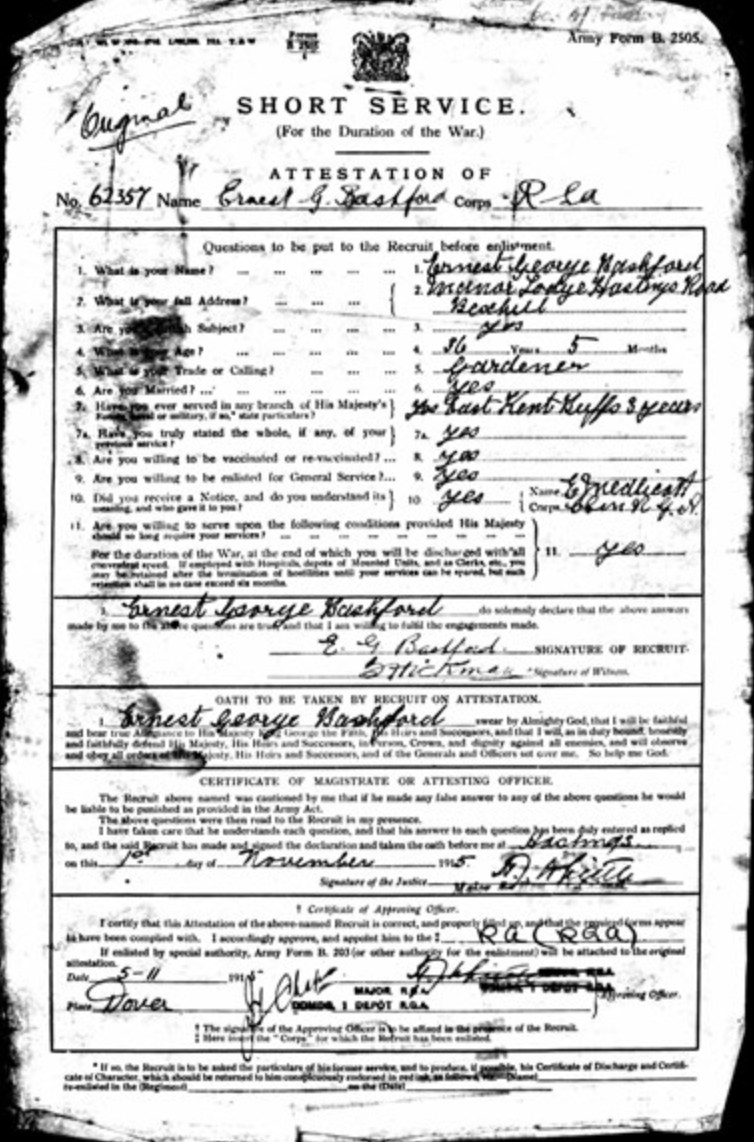 Forms
B 2505
1
Army Form B. 2505.
Original
SHORT SERVICE.
(For the Duration of the War.)
ATTESTATION OF
No. 62357 Name Ernest G. Bashford Corps R Ga
Questions to be put to the Recruit before enlistment.
1. What is your Name? ... ... ... ... 1. Ernest George Bashford
2. What is your full Address? ... ... ... 2. Manor Lodge Hastings Road
Bexhill
3. Are you British Subject? ... ... ... 3. yes
4. What is your Age? ... ... ... ... 4. 36 Years 5 Months
5. What is your Trade or Calling? ... ... ... 5. Gardener
6. Are you Married? ... ... ... ... 6. yes
7. Have you ever served in any branch of His Majesty's
Forces, naval or military, if so,* state particulars? yes East Kent Buffs 3 years
7a. Have you truly stated the whole, if any, of your
previous service? 7a. yes
8. Are you willing to be vaccinated or re-vaccinated? ... 8. yes
9. Are you willing to be enlisted for General Service? ... 9. yes
10. Did you receive a Notice, and do you understand its
meaning, and who gave it to you? 10. yes Name E Medlicott
Corps
11. Are you willing to serve upon the following conditions provided His Majesty
should so long require your services? ... ... ... ... ... ...
For the duration of the War, at the end of which you will be discharged with all
convenient speed. If employed with Hospitals, depots of Mounted Units, and as Clerks, etc., you
may be retained after the termination of hostilities until your services can be spared, but such
retention shall in no case exceed six months. 11. yes
I, Ernest George Bashford do solemnly declare that the above answers
made by me to the above questions are true, and that I am willing to fulfil the engagements made.
E. G. Bashford. SIGNATURE OF RECRUIT.
G Hickman Signature of Witness.
OATH TO BE TAKEN BY RECRUIT ON ATTESTATION.
I, Ernest George Bashford swear by Almighty God, that I will be faithful
and bear true Allegiance to His Majesty King George the Fifth, His Heirs and Successors, and that I will, as in duty bound, honestly
and faithfully defend His Majesty, His Heirs and Successors, in Person, Crown, and dignity against all enemies, and will observe
and obey all orders of His Majesty, His Heirs and Successors, and of the Generals and Officers set over me. So help me God.
CERTIFICATE OF MAGISTRATE OR ATTESTING OFFICER.
The Recruit above named was cautioned by me that if he made any false answer to any of the above questions he would
be liable to be punished as provided in the Army Act.
The above questions were then read to the Recruit in my presence.
I have taken care that he understands each question, and that his answer to each question has been duly entered as replied
to, and the said Recruit has made and signed the declaration and taken the oath before me at Hastings
on this 1st day of November 1915.
Signature of the Justice
† Certificate of Approving Officer.
I certify that this Attestation of the above-named Recruit is correct, and properly filled up, and that the required forms appear
to have been complied with. I accordingly approve, and appoint him to the ‡ RA (RGA)
If enlisted by special authority, Army Form B. 203 (or other authority for the enlistment) will be attached to the original
attestation.
Date 5-11 1915
MAJOR R.G.A.
COMDG. 1 DEPÔT R.G.A.
Place Dover Approving Officer.
† The signature of the Approving Officer is to be affixed in the presence of the Recruit.
‡ Here insert the "Corps" for which the Recruit has been enlisted.
* If so, the Recruit is to be asked the particulars of his former service, and to produce, if possible, his Certificate of Discharge and Certifi-
cate of Character, which should be returned to him conspicuously endorsed in red ink, as follows, viz. (Name)
re-enlisted in the (Regiment) on the (Date)